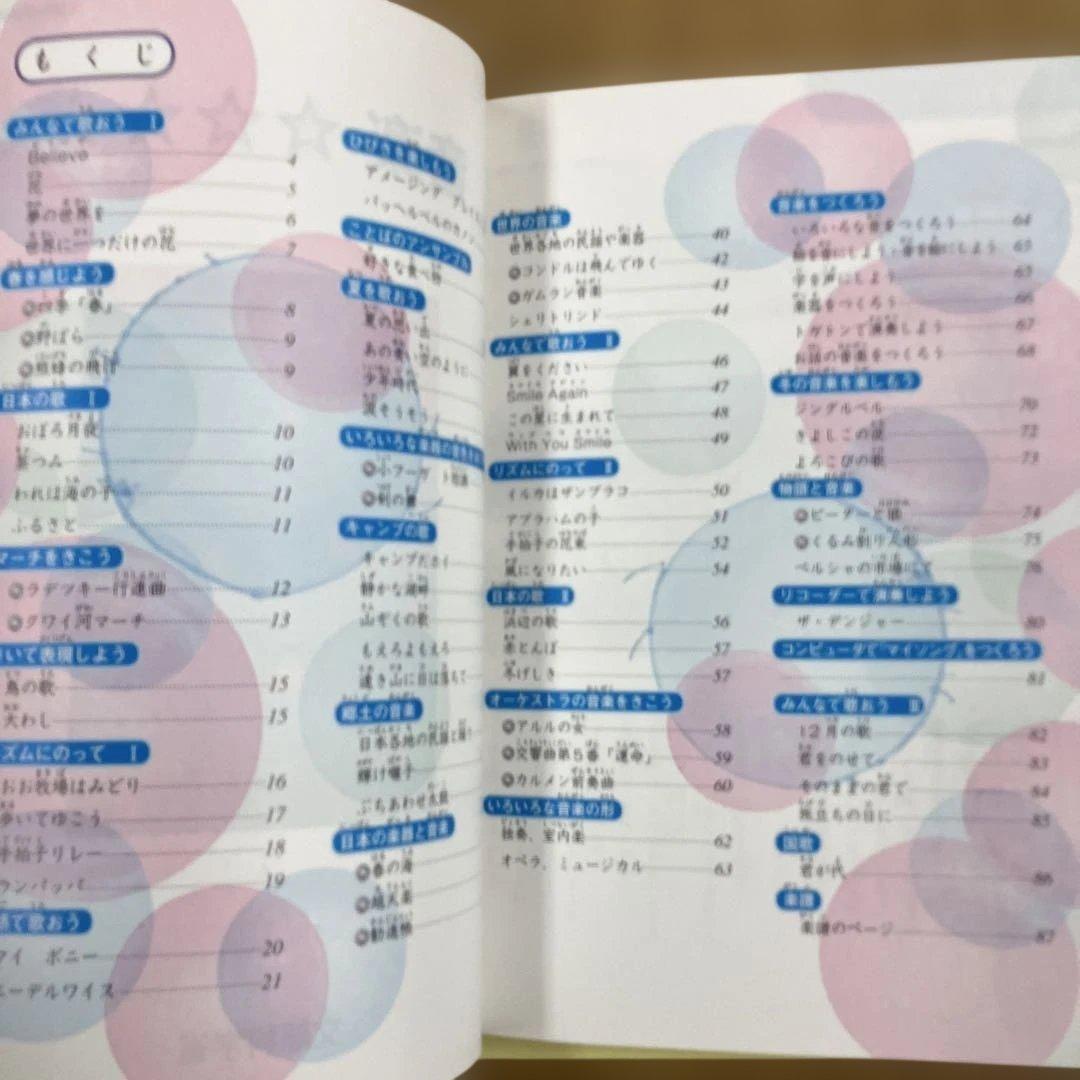 もくじ
みんなで歌おう Ⅰ
Believe 4
花 5
夢の世界を 6
世界に一つだけの花 7
春を感じよう
四季「春」 8
野ばら 9
熊蜂の飛行 9
日本の歌 Ⅰ
おぼろ月夜 10
茶つみ 10
われは海の子 11
ふるさと 11
マーチをきこう
ラデツキー行進曲 12
クワイ河マーチ 13
いて表現しよう
鳥の歌 15
大わし 15
ズムにのって Ⅰ
おお牧場はみどり 16
歩いてゆこう 17
手拍子リレー 18
ランパッパ 19
語で歌おう
マイ ボニー 20
エーデルワイス 21
ひびきを楽しもう
アメージング グレイス
パッヘルベルのカノン
ことばのアンサンブル
好きな食べ物
夏を歌おう
夏の思い出
あの青い空のように
少年時代
涙そうそう
いろいろな楽器の音色を
小フーガ ト短調
剣の舞
キャンプの歌
キャンプだホイ
静かな湖畔
山ぞくの歌
もえろよもえろ
遠き山に日は落ちて
郷土の音楽
日本各地の民謡と
輝け囃子
ぶちあわせ太鼓
日本の楽器と音楽
春の海
越天楽
勧進帳
世界の音楽
世界各地の民謡や楽器 40
コンドルは飛んでゆく 42
ガムラン音楽 43
シェリトリンド 44
みんなで歌おう Ⅱ
翼をください 46
Smile Again 47
この星に生まれて 48
With You Smile 49
リズムにのって Ⅱ
イルカはザンブラコ 50
アブラハムの子 51
手拍子の花束 52
風になりたい 54
日本の歌 Ⅱ
浜辺の歌 56
赤とんぼ 57
冬げしき 57
オーケストラの音楽をきこう
アルルの女 58
交響曲第5番「運命」 59
カルメン前奏曲 60
いろいろな音楽の形
独奏、室内楽 62
オペラ、ミュージカル 63
音楽をつくろう
いろいろな音をつくろう 64
絵を音にしよう・音を絵にしよう 65
字を声にしよう 65
楽器をつくろう 66
トガトンで演奏しよう 67
お話の音楽をつくろう 68
冬の音楽を楽しもう
ジングルベル 70
きよしこの夜 72
よろこびの歌 73
物語と音楽
ピーターと狼 74
くるみ割り人形 75
ペルシャの市場にて 76
リコーダーで演奏しよう
ザ・デンジャー 80
コンピュータで「マイソング」をつくろう
81
みんなで歌おう Ⅲ
12月の歌 82
君をのせて 83
そのままの君で 84
旅立ちの日に 85
国歌
君が代 86
楽譜
楽譜のページ 87